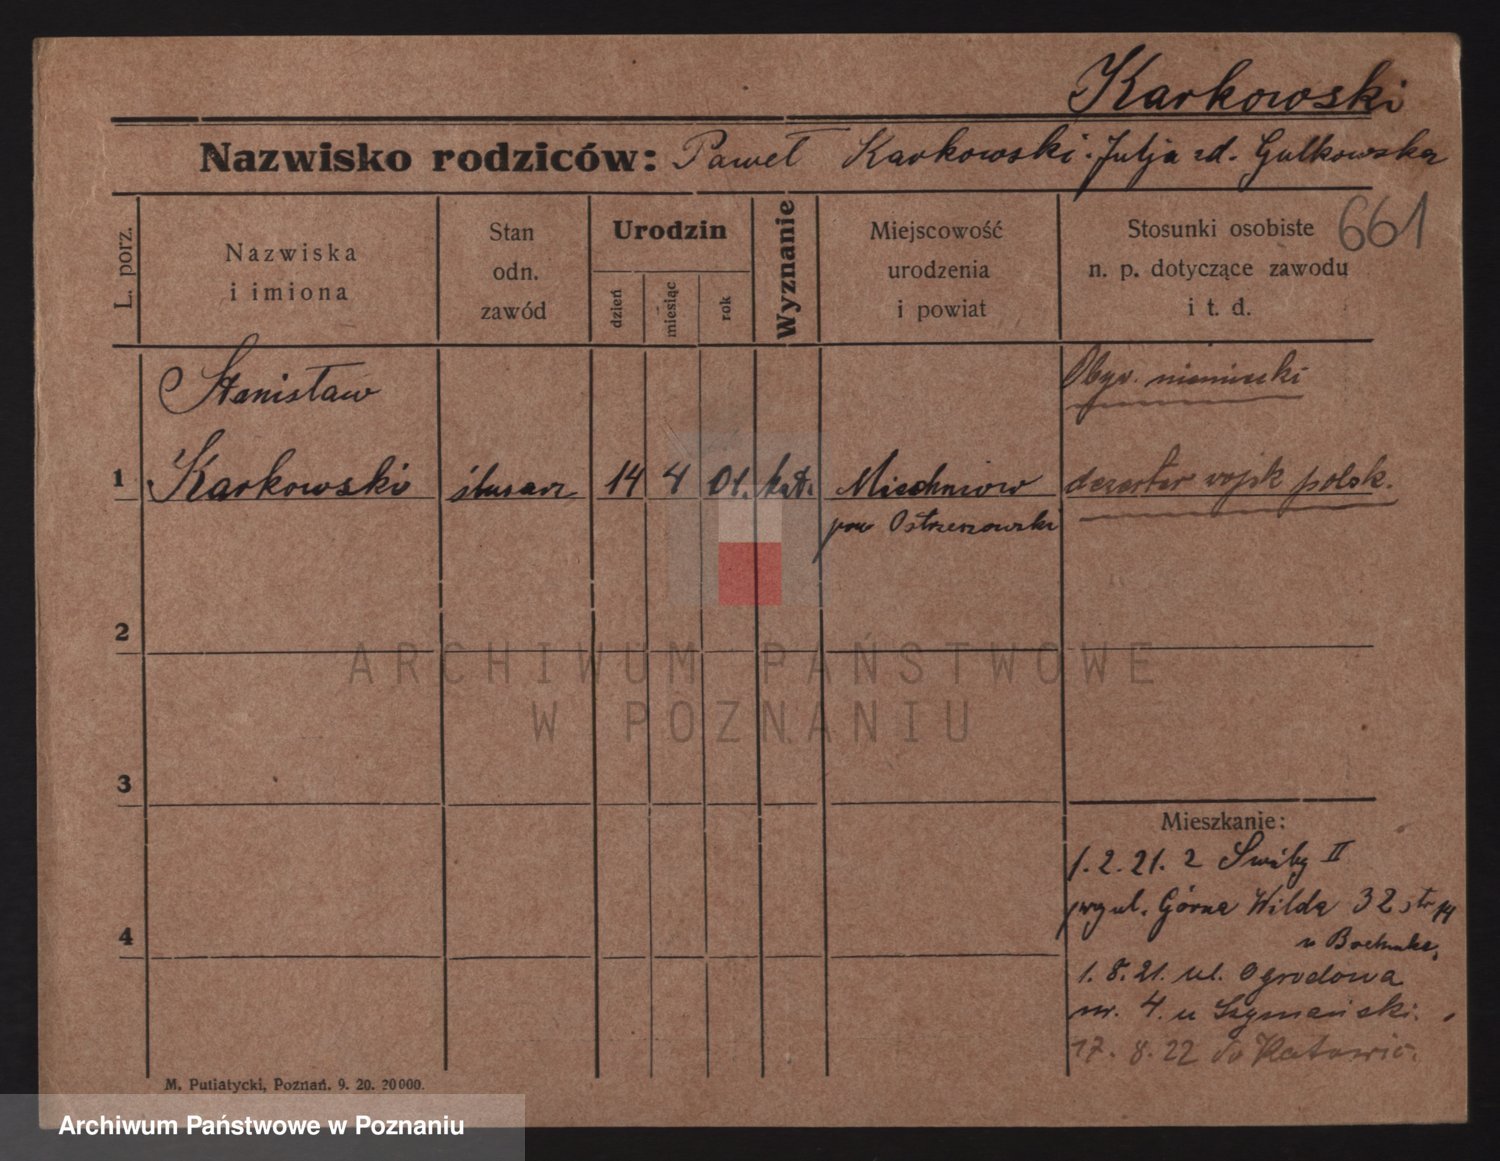 Karkowski
Nazwisko rodziców: Paweł Karkowski. Julja zd. Gulkowska
661
L. porz.
Nazwiska
i imiona
Stan
odn.
zawód
Urodzin
dzień
miesiąc
rok
Wyznanie
Miejscowość
urodzenia
i powiat
Stosunki osobiste
n. p. dotyczące zawodu
i t. d.
Stanisław
Obyw. niemiecki
1 Karkowski ślusarz 14 4 01. kat. dezerter wojsk polsk.
pow Ostrzeszowski
2
3
4
Mieszkanie:
1. 2. 21. 2 II
przy ul. Górna Wilda 32
u
1. 8. 21. ul. Ogrodowa
nr. 4. u Szymański.
17. 8. 22 do Katowic.
M. Putiatycki, Poznań. 9. 20. 20000.
ARCHIWUM PAŃSTWOWE
W POZNANIU
Archiwum Państwowe w Poznaniu